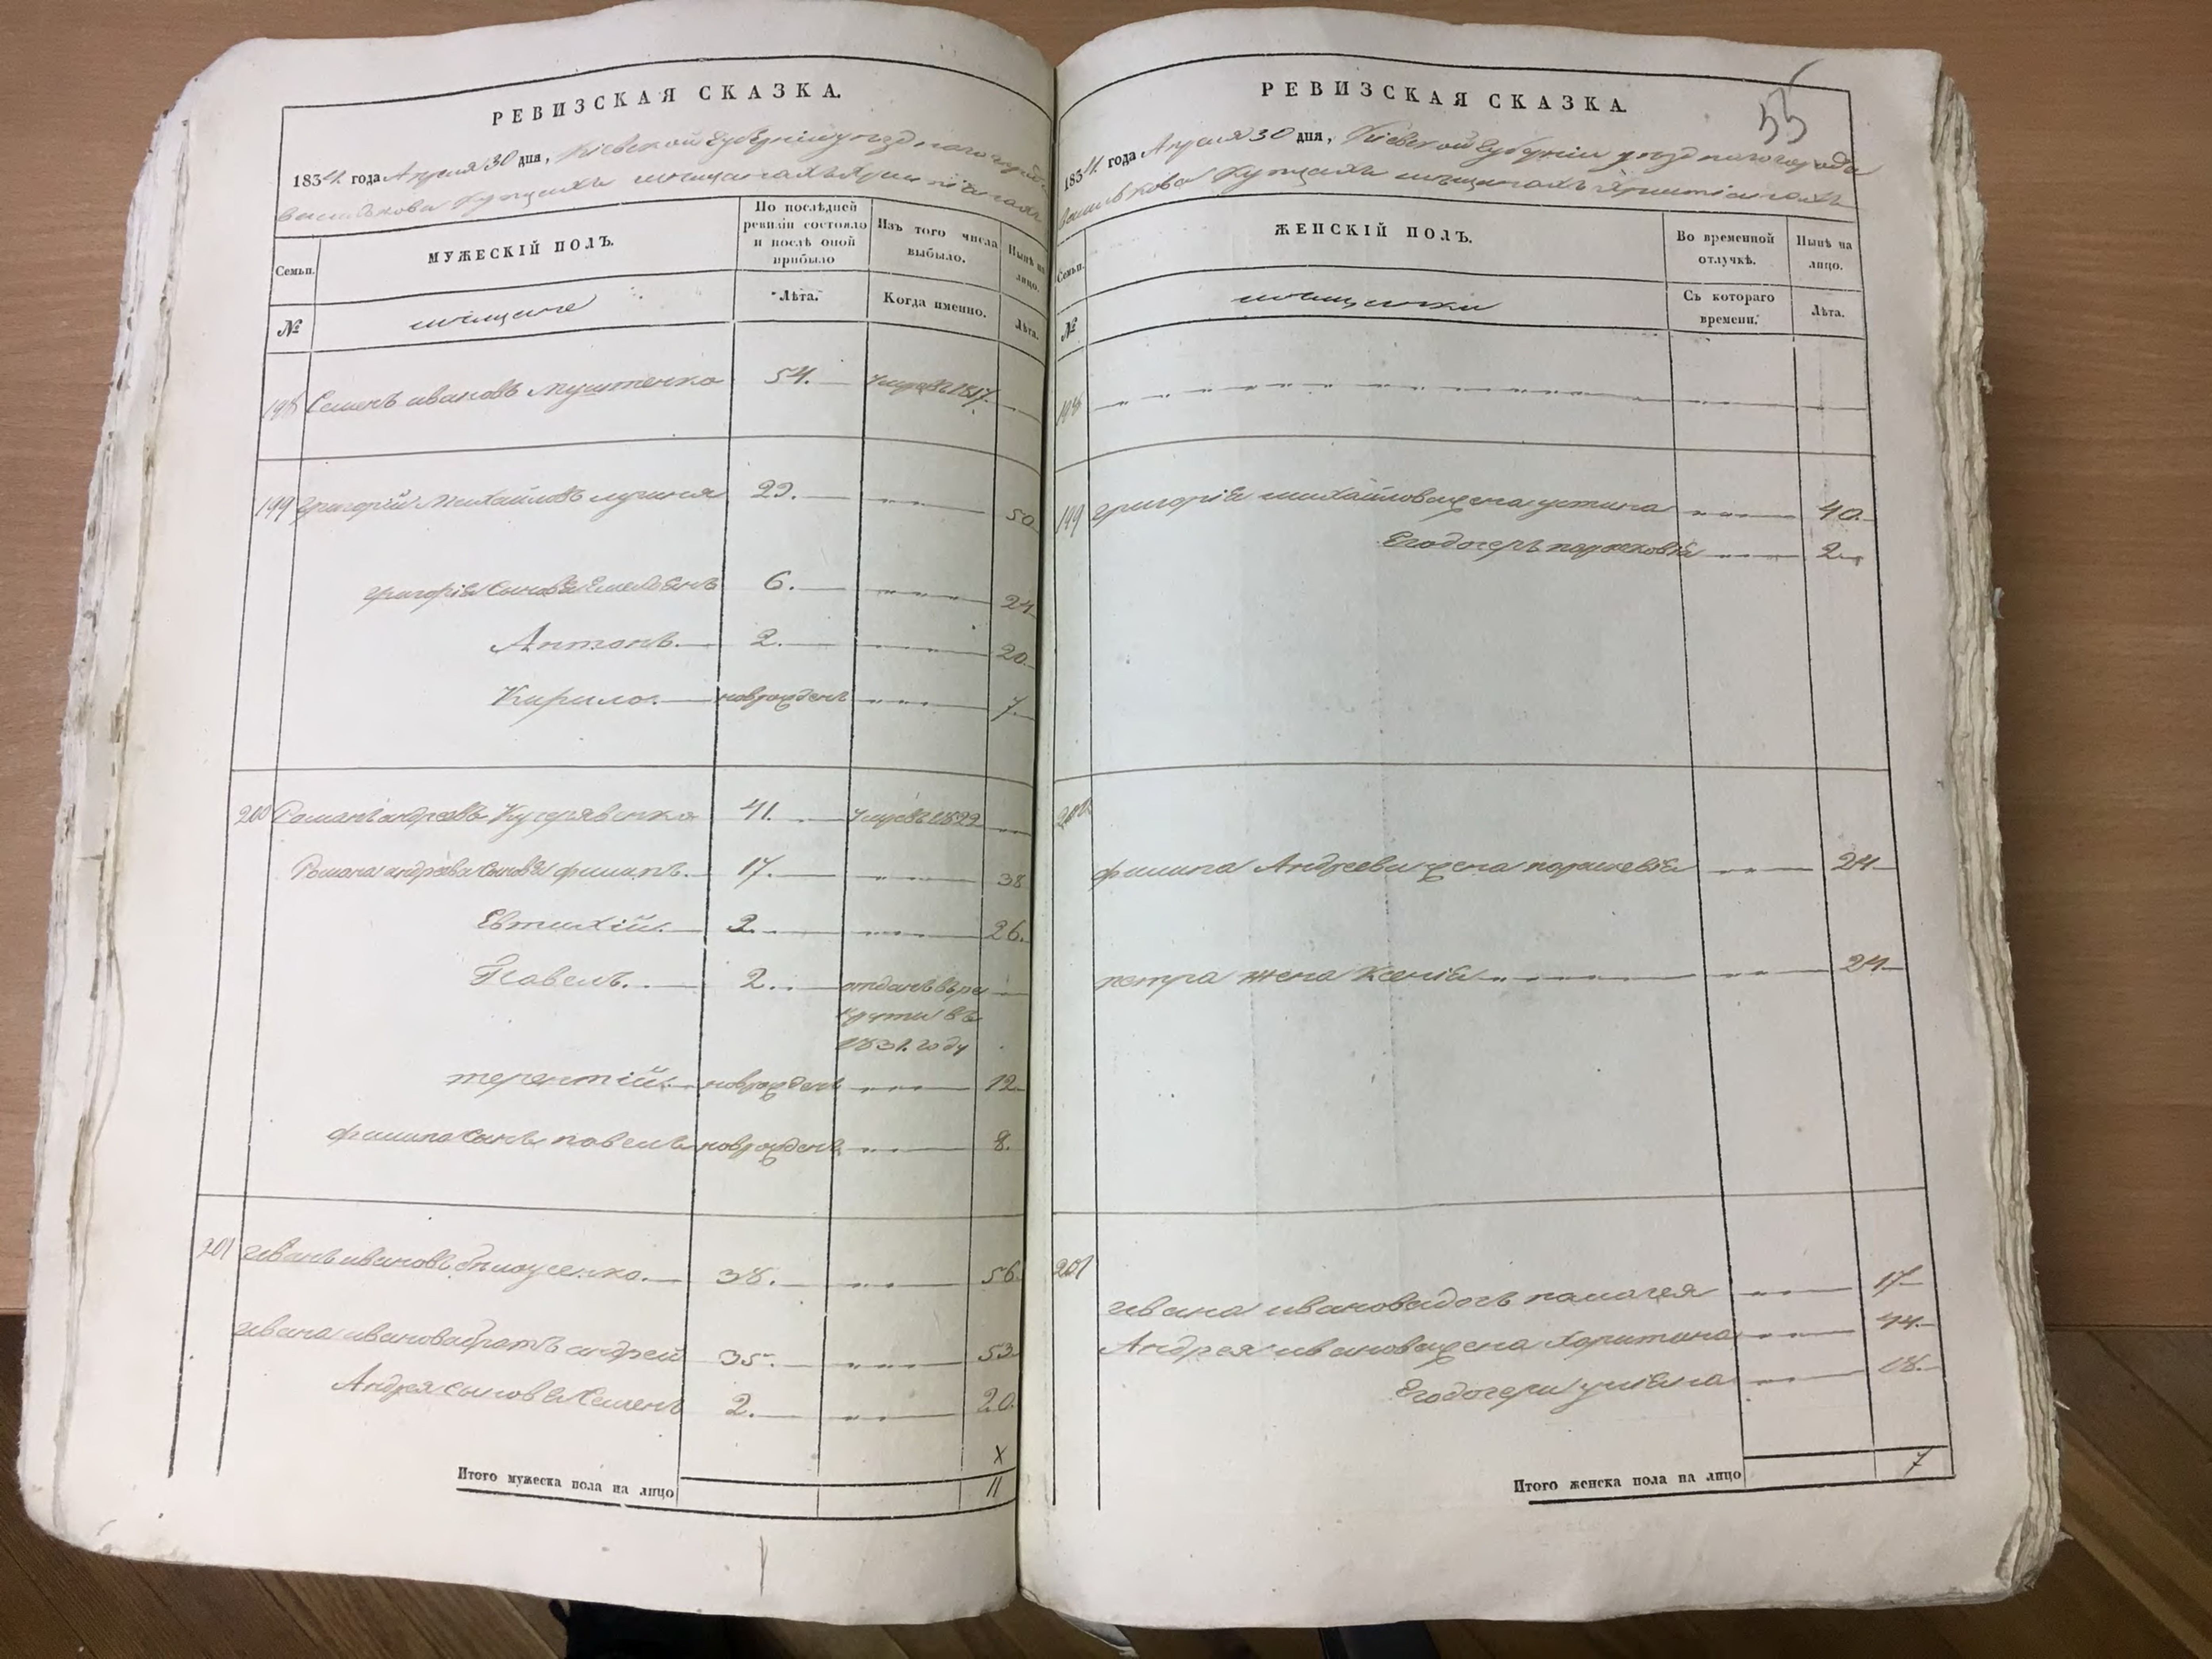 РЕВИЗСКАЯ СКАЗКА.
1834. года Апреля 30 дня, Кіевской Губерніи уезднаго города
василькова Купцахъ мещанахъ християнахъ
Семьи. МУЖЕСКІЙ ПОЛЪ. По послѣдней ревизіи состояло и послѣ оной прибыло Изъ того числа выбыло. Нынѣ на лицо.
№ мещане Лѣта. Когда именно. Лѣта.
198 Семенъ ивановъ 54. умре въ 1817.
199 григорій михайловъ 29. 50
григорія сыновья Емельянъ 6. 24
Антонъ. 2. 20.
Кирило. новрожденъ 7.
200 Романъ андреевъ Кучерявенко 41. умре въ 1829
Романа андреева сыновья филипъ. 17. 38
Евтихій. 2. 26.
Павелъ. 2. отданъ въ ре
круты въ
1831. году
терентій. новрожденъ 12
филипа сынъ павелъ новрожденъ 8.
201 иванъ ивановъ 38. 56.
ивана иванова братъ андрей 35. 53
Андрея сыновья Семенъ 2. 20.
X
Итого мужеска пола на лицо 11
РЕВИЗСКАЯ СКАЗКА.
55
1834. года Апреля 30 дня, Кіевской Губерніи уезднаго города
василькова Купцахъ мещанахъ християнахъ
Семьи. ЖЕНСКІЙ ПОЛЪ. Во временной отлучкѣ. Нынѣ на лицо.
№ мещанки Съ котораго времени. Лѣта.
198
199 григорія михайлова жена устина 40.
Его дочерь парасковія 2.
200
филипа Андреева жена парасковія 24
петра жена Ксенія 24
201
ивана иванова дочь палагея 17
Андрея иванова жена Харитина 44.
Его дочери уліяна 18.
Итого женска пола на лицо 7